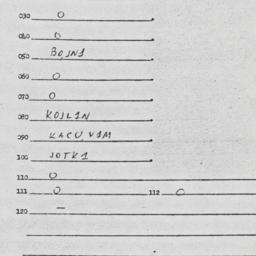 030 O
040 O
050 BOJNI
060 O
070 O
080 KOILIN
090 KACUNIM
100 JOTKI
110 O
111 O 112 O
120 —